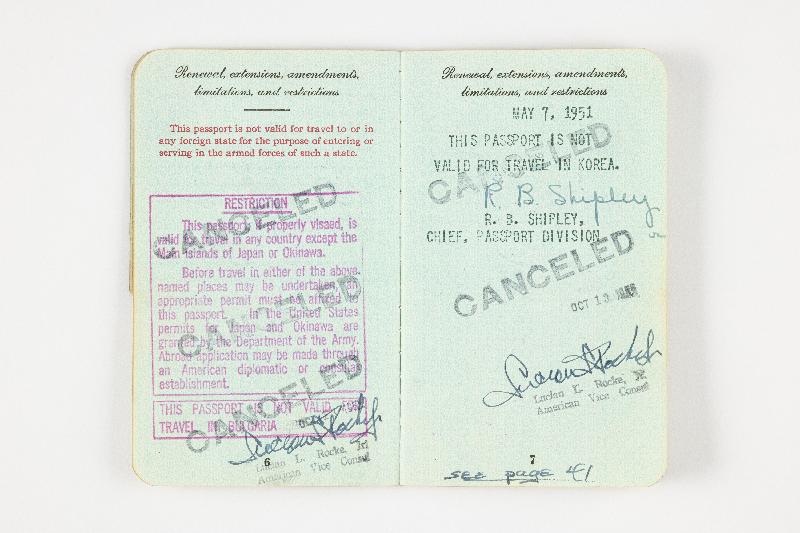 Renewal, extensions, amendments,
limitations, and restrictions
This passport is not valid for travel to or in
any foreign state for the purpose of entering or
serving in the armed forces of such a state.
RESTRICTION
This passport, if properly visaed, is
valid for travel in any country except the
Main islands of Japan or Okinawa.
Before travel in either of the above
named places may be undertaken, an
appropriate permit must be affixed to
this passport. In the United States
permits for Japan and Okinawa are
granted by the Department of the Army.
Abroad application may be made through
an American diplomatic or consular
establishment.
THIS PASSPORT IS NOT VALID FOR
TRAVEL IN BULGARIA
CANCELED
CANCELED
CANCELED
Lucian L. Rocke, Jr
American Vice Consul
6
Renewal, extensions, amendments,
limitations, and restrictions
MAY 7, 1951
THIS PASSPORT IS NOT
VALID FOR TRAVEL IN KOREA.
CANCELED
R. B. Shipley
R. B. SHIPLEY,
CHIEF, PASSPORT DIVISION
CANCELED
OCT 13
Lucian L. Rocke, Jr
American Vice Consul
7
see page 41